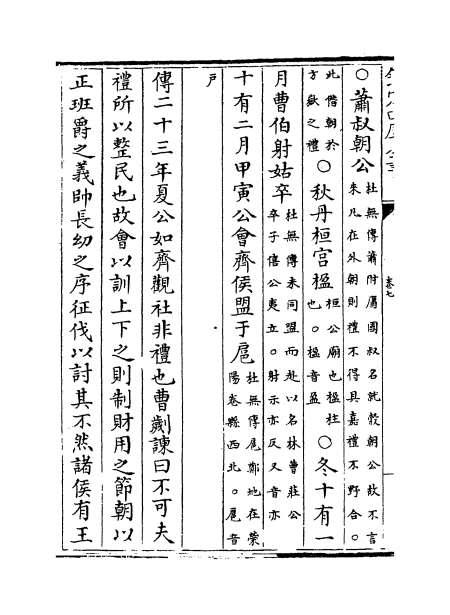 ○蕭叔朝公杜無傳蕭附庸國叔名就穀朝公故不言來凡在外朝則禮不得具嘉禮不野合○
此僭朝於方嶽之禮○秋丹桓宫楹桓公廟也楹柱也○楹音盈○冬十有一
月曹伯射姑卒杜無傳未同盟而赴以名林曹莊公卒子僖公夷立○射示亦反又音亦
十有二月甲寅公會齊侯盟于扈杜無傳扈鄭地在滎陽卷縣西北○扈音
戸
傳二十三年夏公如齊觀社非禮也曹劌諫曰不可夫
禮所以整民也故會以訓上下之則制財用之節朝以
正班爵之義帥長幼之序征伐以討其不然諸侯有王
卷七